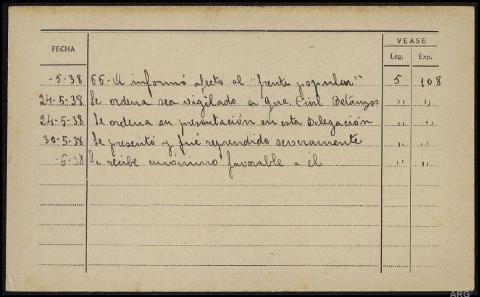 VEASE
FECHA Leg. Exp.
-5-38 66-A informó afecto al "frente popular" 5 108
24-5-38 Se ordena sea vigilado a Gua. Civil Betanzos " "
24-5-38 Se ordena su presentación en esta Delegación " "
30-5-38 Se presentó y fué reprendido severamente " "
-6-38 Se recibe anónimo favorable a él
ARG